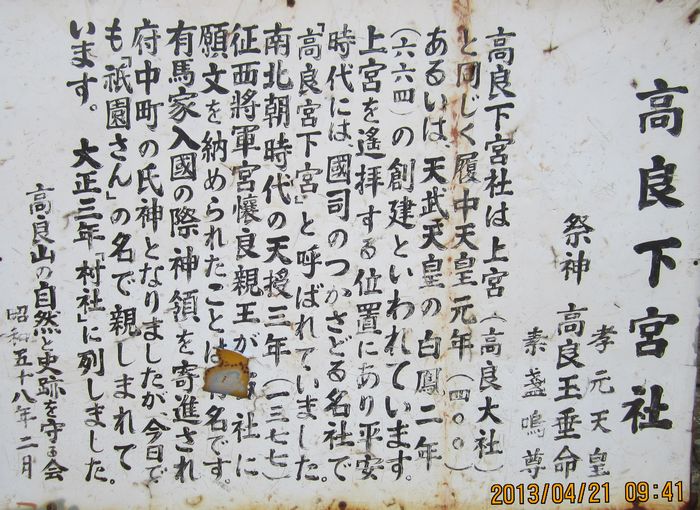 高良下宮社
祭神
孝元天皇
高良玉垂命
素盞嗚尊
高良下宮社は上宮(高良大社)
と同じく履中天皇元年(四〇〇)
あるいは、天武天皇の白鳳二年
(六六四)の創建といわれています。
上宮を遙拝する位置にあり平安
時代には國司のつかさどる名社で
「高良宮下宮」と呼ばれていました。
南北朝時代の天授三年(一三七七)
征西將軍宮懐良親王が 社に
願文を納められたことは 名です。
有馬家入國の際神領を寄進され
府中町の氏神となりましたが、今日で
も「祇園さん」の名で親しまれて
います。 大正三年「村社」に列しました。
高良山の自然と史跡を守る会
昭和五十八年二月
2013/04/21 09:41